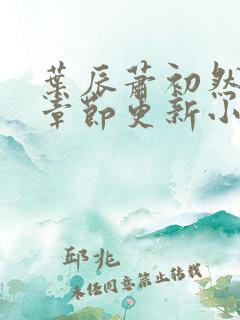 葉辰蕭初然
章節更新小
邱兆
未任同意禁止转载